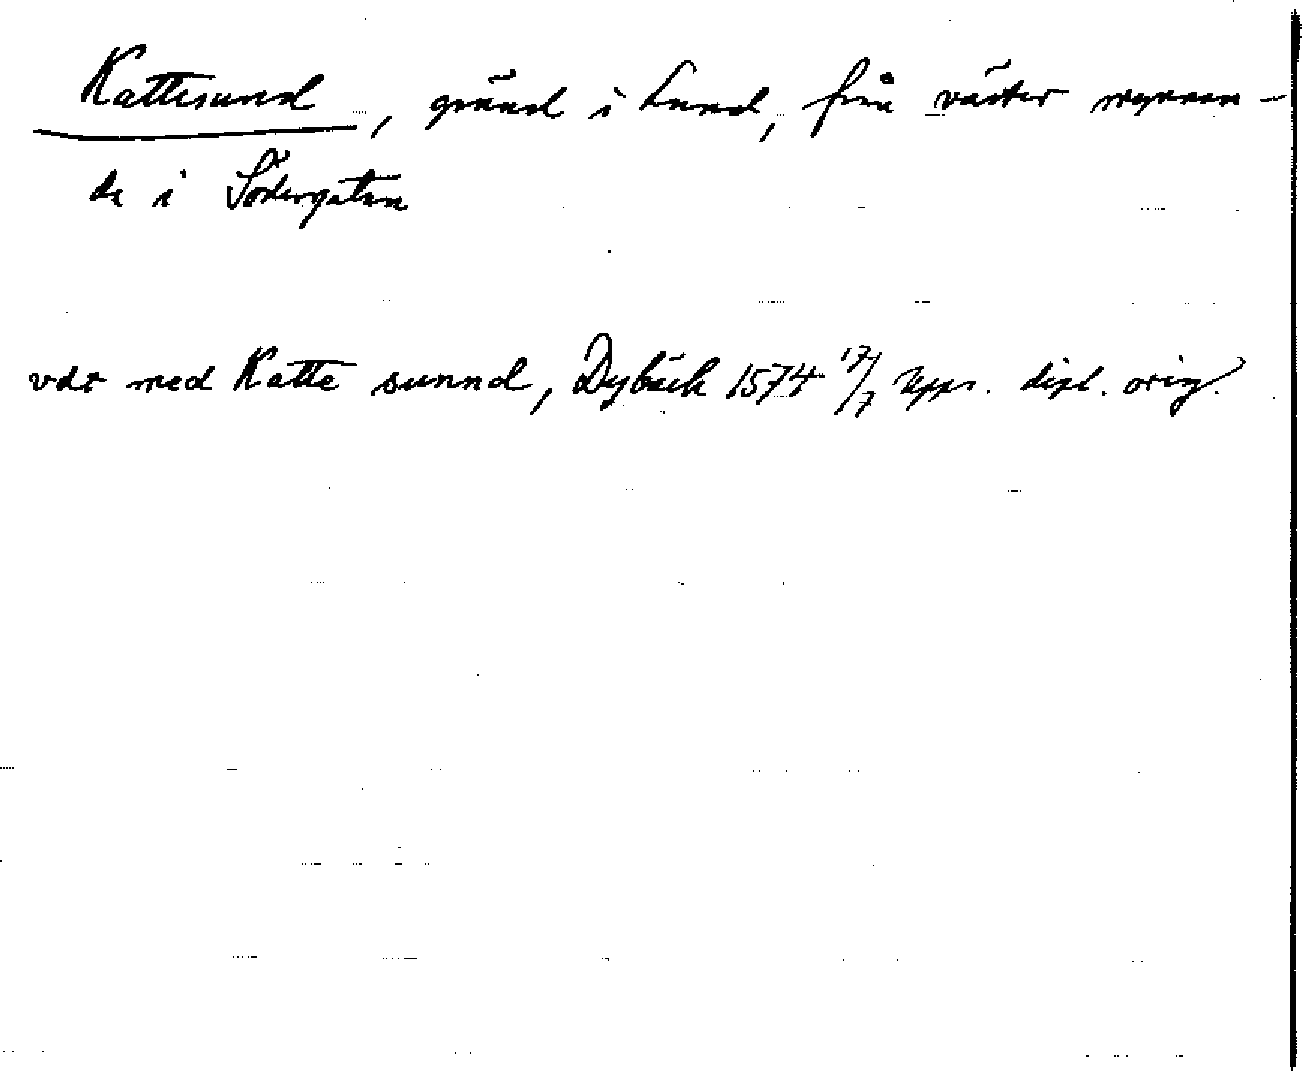 Kattesund, gränd i Lund, från väster mynnan-
de i Södergatan
vdt med Katte sunnd, Dybäck 1574 17/7 Upps. dipl. orig.